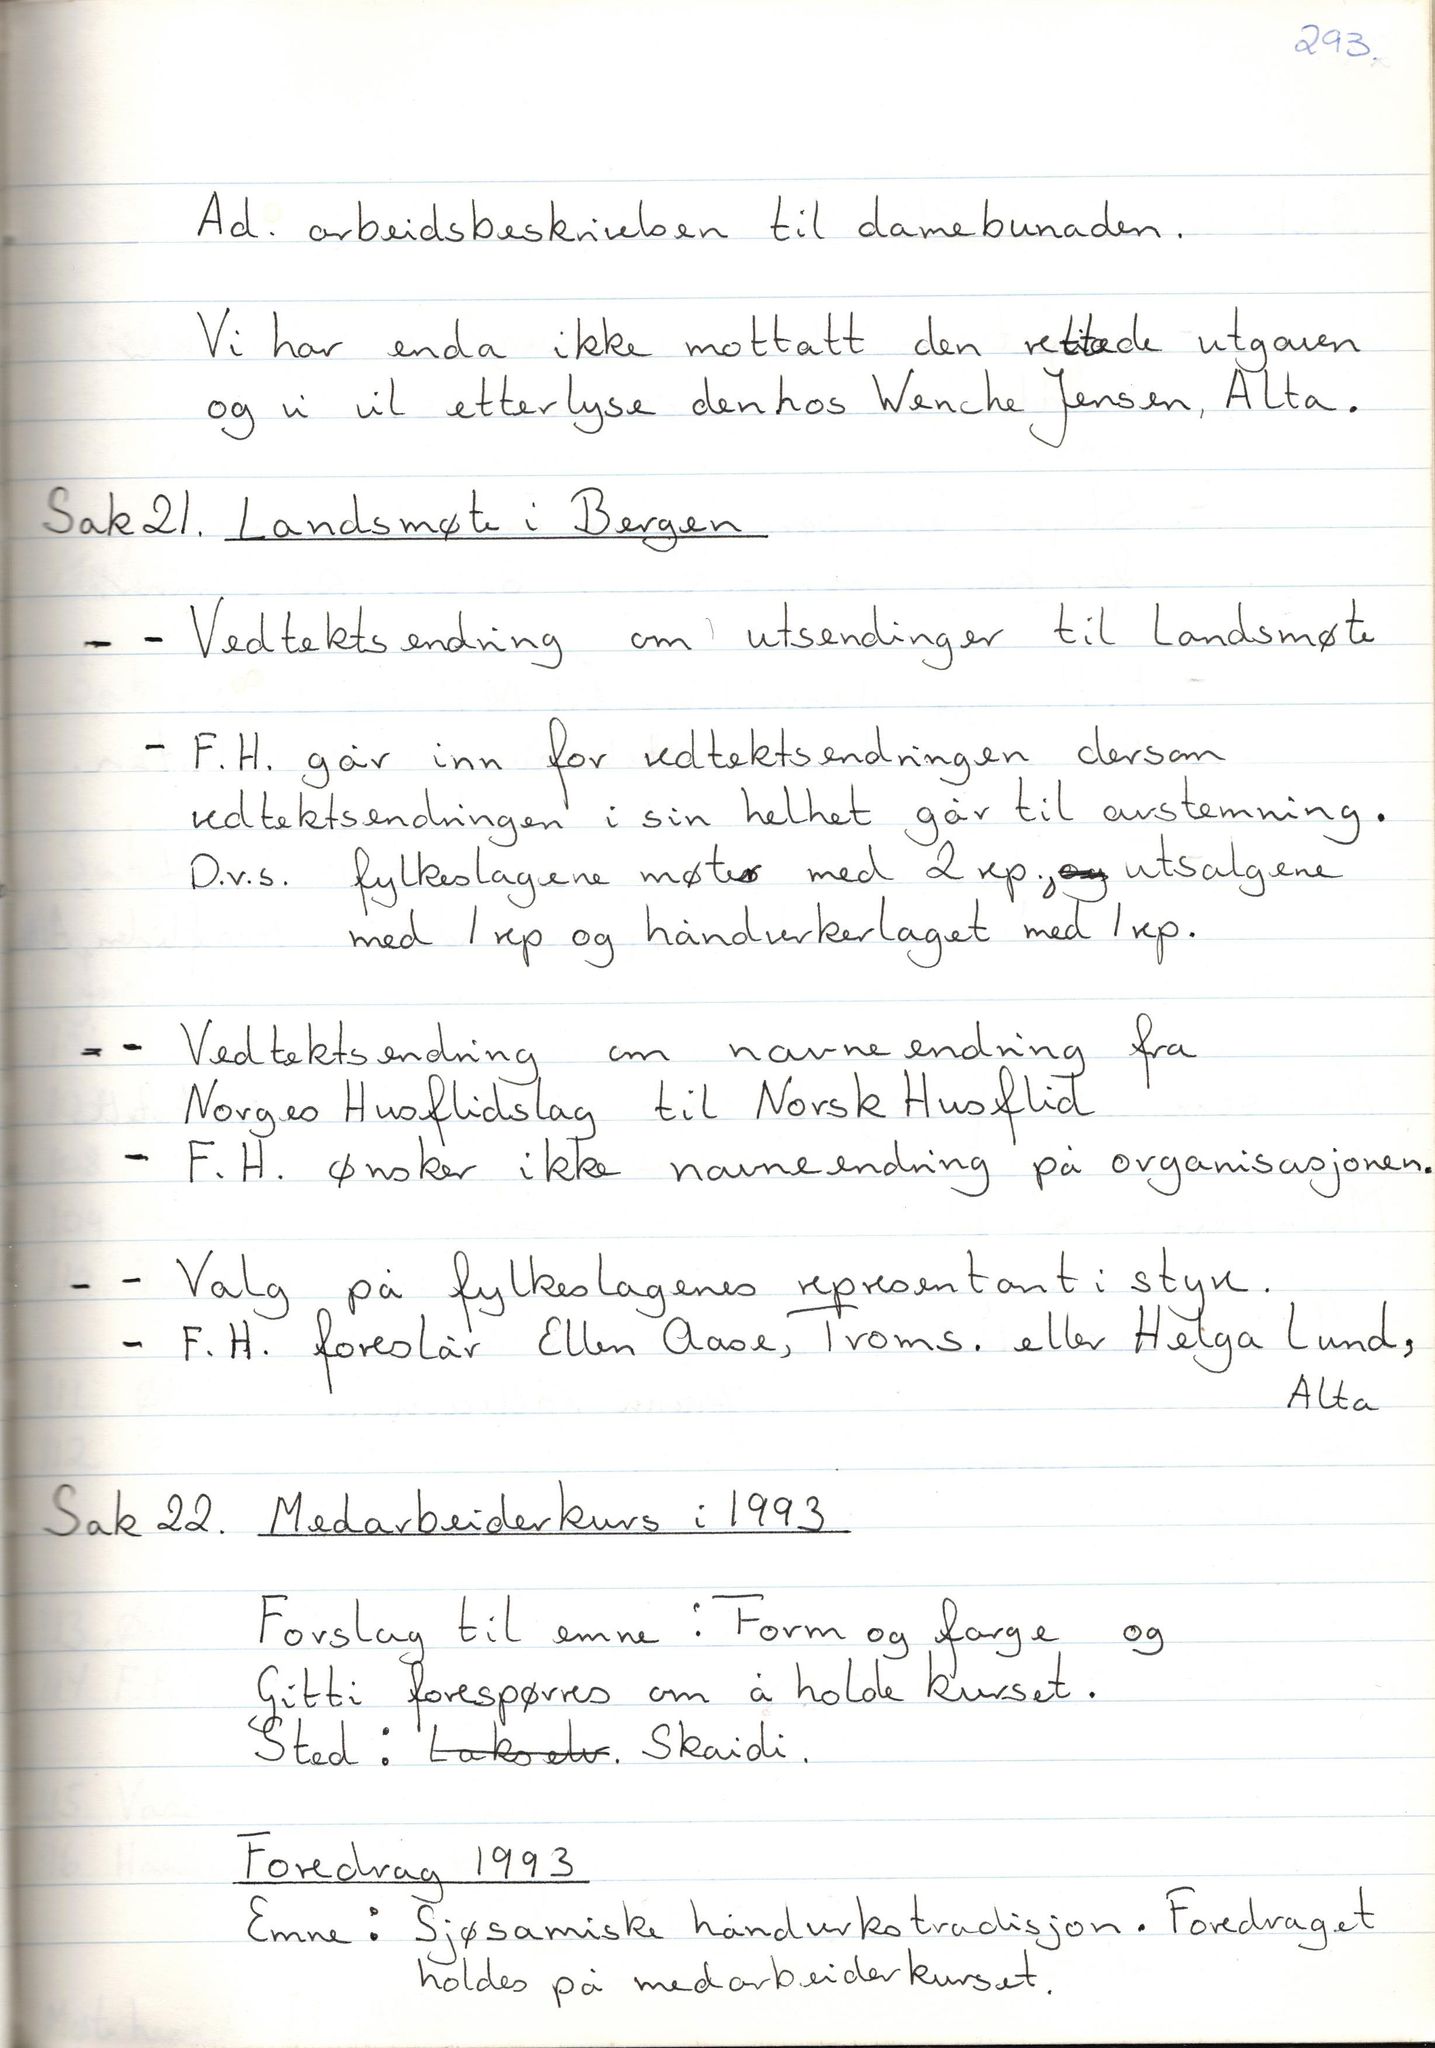 293.
Ad. arbeidsbeskrivelsen til damebunaden.
Vi har enda ikke mottatt den rettede utgaven
og vi vil etterlyse den hos Wenche Jensen, Alta.
Sak 21. Landsmøte i Bergen
- - Vedtektsendring om utsendinger til Landsmøte
- F.H. går inn for vedtektsendringen dersom
vedtektsendringen i sin helhet går til avstemning.
D.v.s. fylkeslagene møter med 2 rep., og utsalgene
med 1 rep og håndverkerlaget med 1 rep.
- - Vedtektsendring om navneendring fra
Norges Husflidslag til Norsk Husflid
- F.H. ønsker ikke navneendring på organisasjonen.
- - Valg på fylkeslagenes representant i styre.
- F.H. foreslår Ellen Aase, Troms. eller Helga Lund,
Alta
Sak 22. Medarbeiderkurs i 1993
Forslag til emne : Form og farge og
Gitti forespørres om å holde kurset.
Sted : Lakselv. Skaidi.
Foredrag 1993
Emne : Sjøsamiske håndverkstradisjon. Foredraget
holdes på medarbeiderkurset.